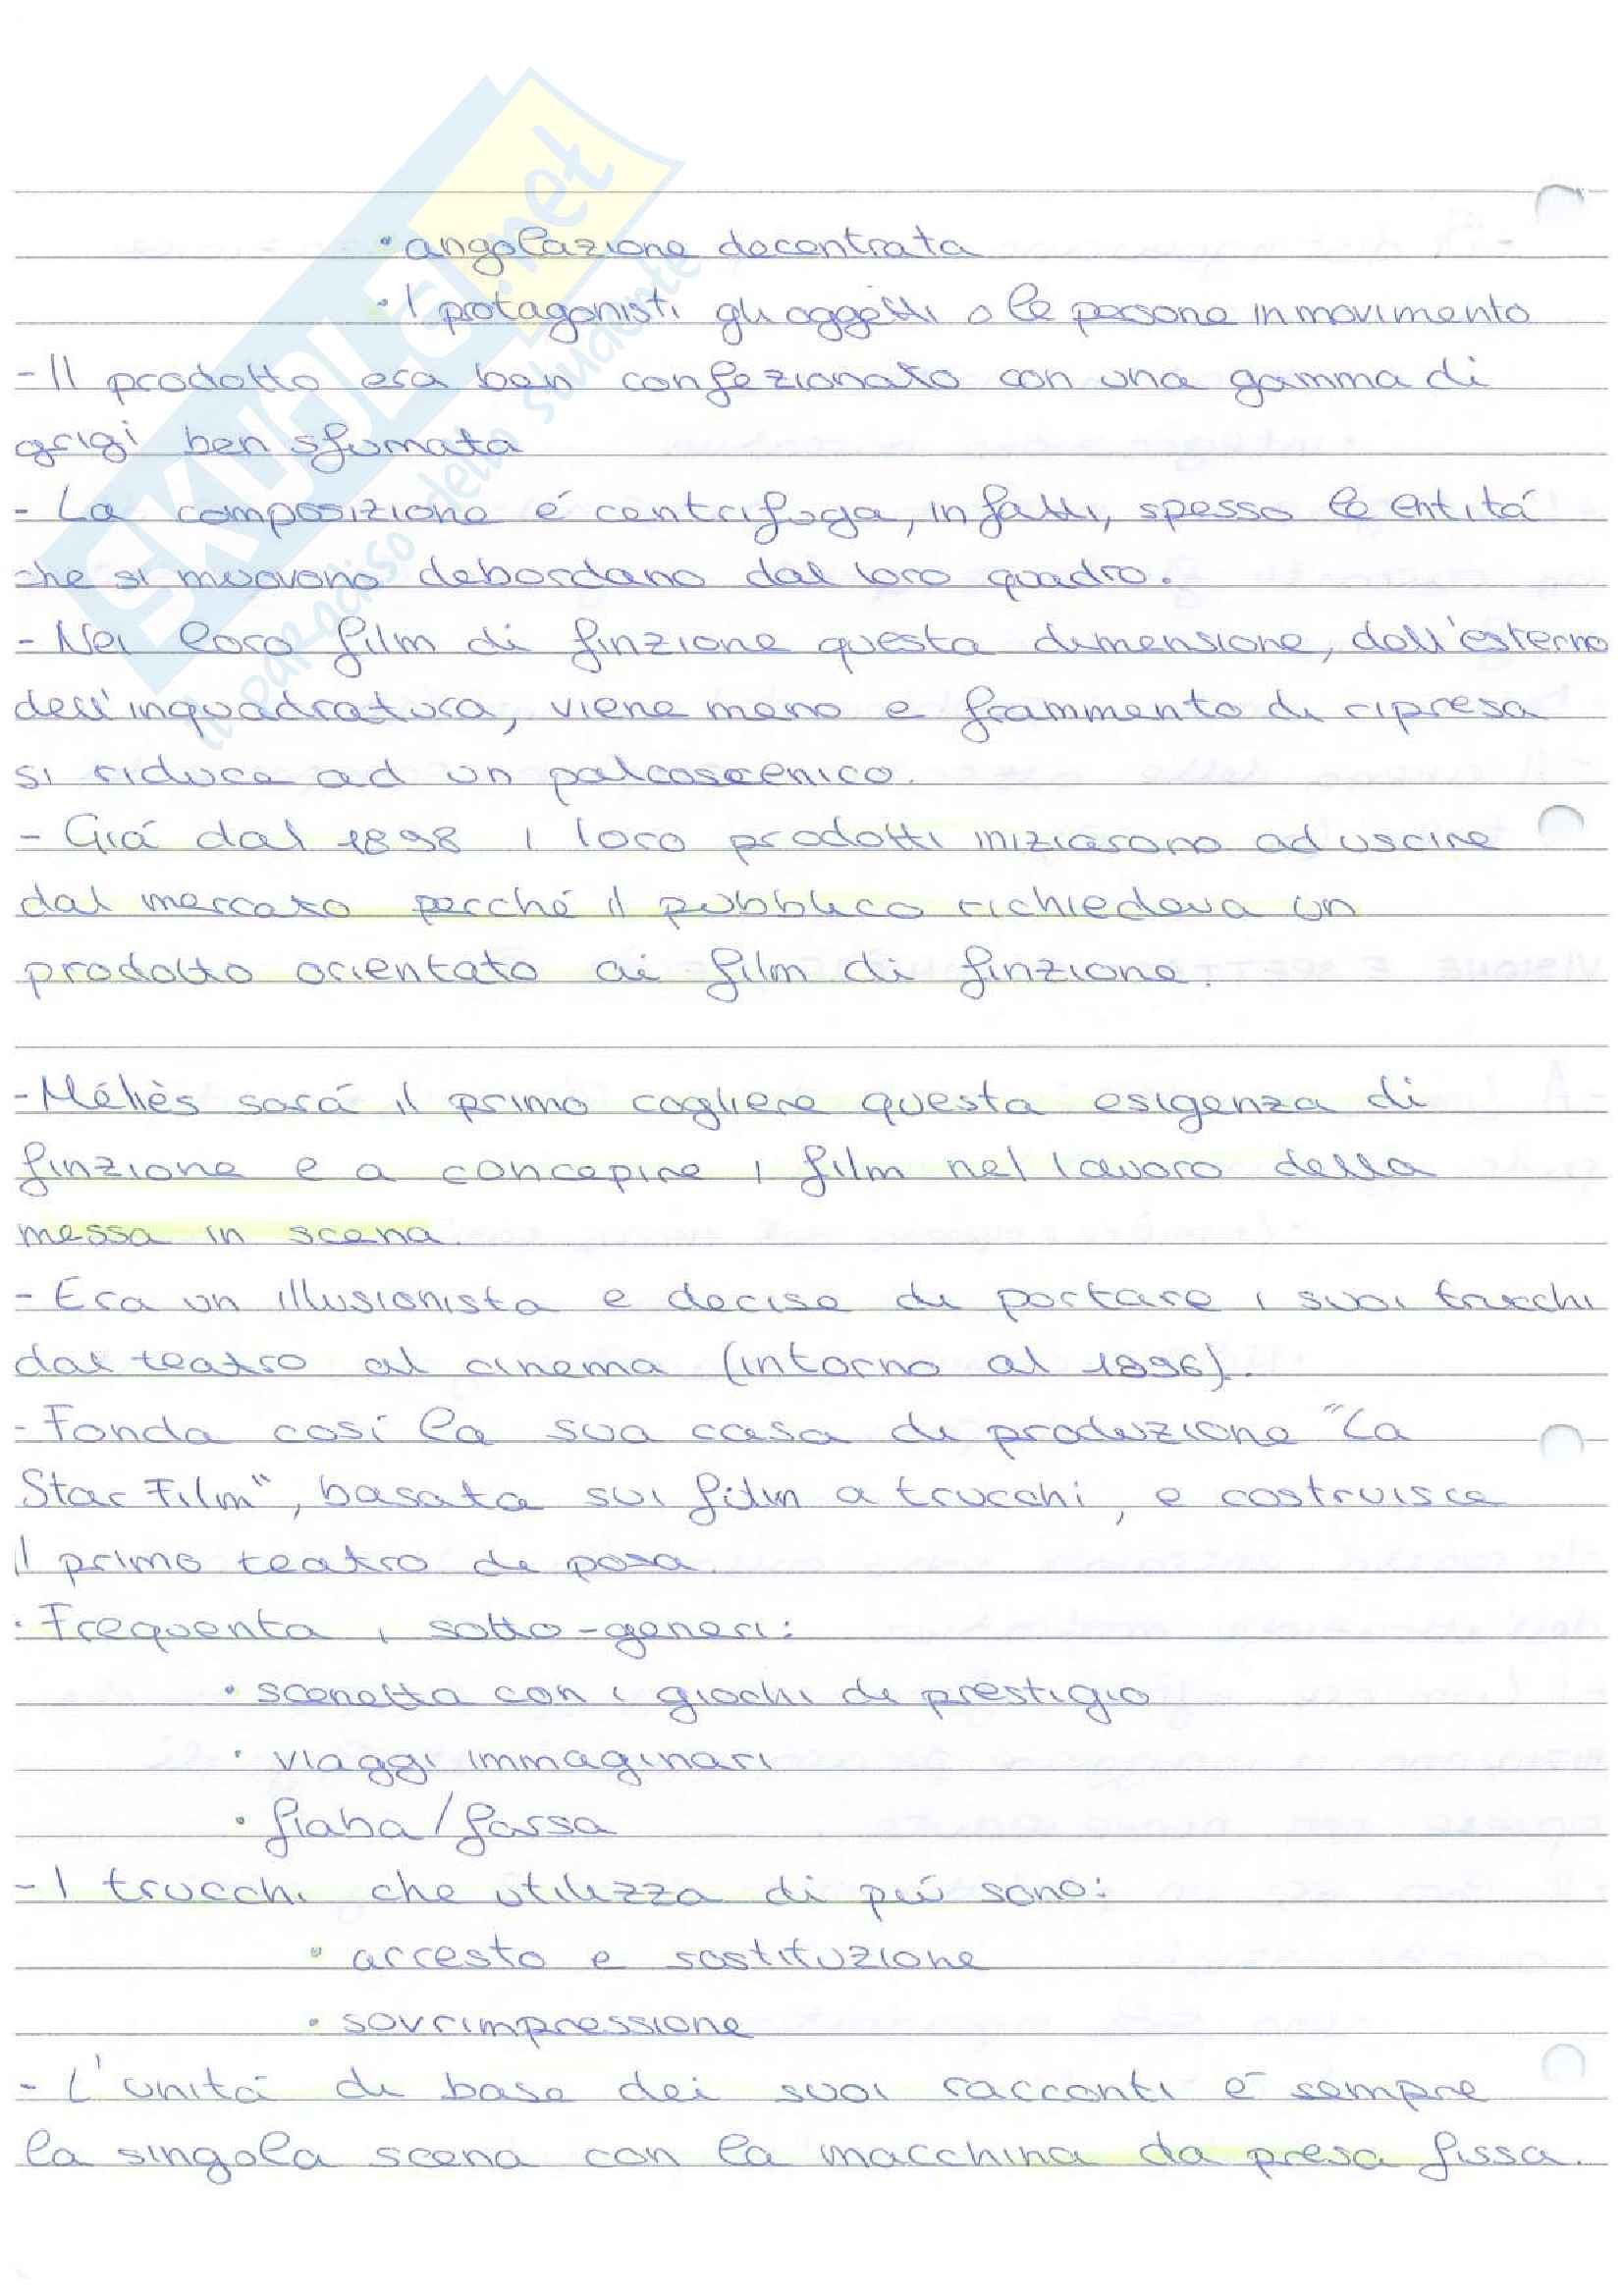 SKUOLA.net
il paradiso dello studente
• angolazione decentrata
• I protagonisti gli oggetti o le persone in movimento
- Il prodotto era ben confezionato con una gamma di
grigi ben sfumata
- La composizione é centrifuga, infatti, spesso le entitá
che si muovono debordano dal loro quadro.
- Nei loro film di finzione questa dimensione, dall'esterno
dell'inquadratura, viene meno e frammento di ripresa
si riduce ad un palcoscenico.
- Giá dal 1898 i loro prodotti iniziarono ad uscire
dal mercato perché il pubblico richiedeva un
prodotto orientato ai film di finzione.
- Méliès sará il primo cogliere questa esigenza di
finzione e a concepire i film nel lavoro della
messa in scena.
- Era un illusionista e decise di portare i suoi trucchi
dal teatro al cinema (intorno al 1896).
- Fonda cosí la sua casa di produzione "La
Star Film", basata sui film a trucchi, e costruisce
il primo teatro di posa.
· Frequenta i sotto-generi:
• scenetta con i giochi di prestigio
• viaggi immaginari
• fiaba/farsa
- I trucchi che utilizza di piú sono:
• arresto e sostituzione
• sovrimpressione
- L'unitá di base dei suoi racconti é sempre
la singola scena con la macchina da presa fissa.